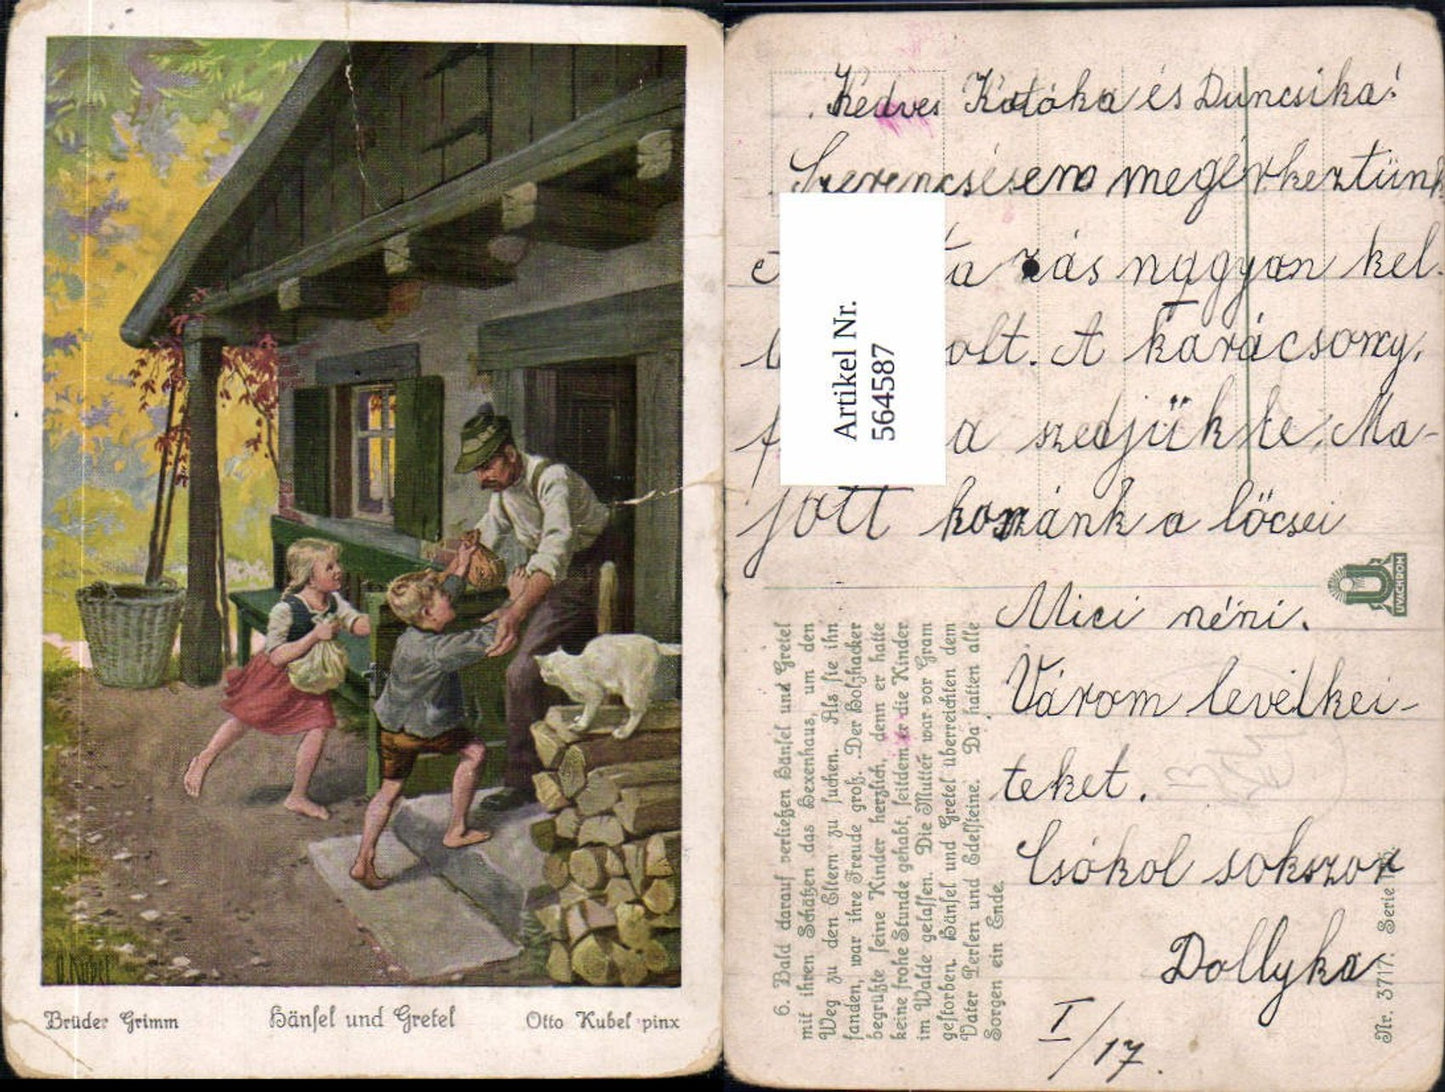 Brüder Grimm
Hänsel und Gretel
Otto Kubel pinx
O. Kubel
Kedves Kotóka és Duncsika!
Szerencsésen megérkeztünk
zás nagyon kel-
olt. A karácsony.
a szedjük le. Ma-
jött hozzánk a lőcsei
Mici néni.
Várom levélkei-
teket.
Csókol sokszor
Dollyka
I/17.
Artikel Nr.
564587
UVACHROM
6. Bald darauf verließen Hänsel und Gretel
mit ihren Schätzen das Hexenhaus, um den
Weg zu den Eltern zu suchen. Als sie ihn
fanden, war ihre Freude groß. Der Holzhacker
begrüßte seine Kinder herzlich, denn er hatte
keine frohe Stunde gehabt, seitdem er die Kinder
im Walde gelassen. Die Mutter war vor Gram
gestorben. Hänsel und Gretel überreichten dem
Vater Perlen und Edelsteine. Da hatten alle
Sorgen ein Ende.
Nr. 3717. Serie